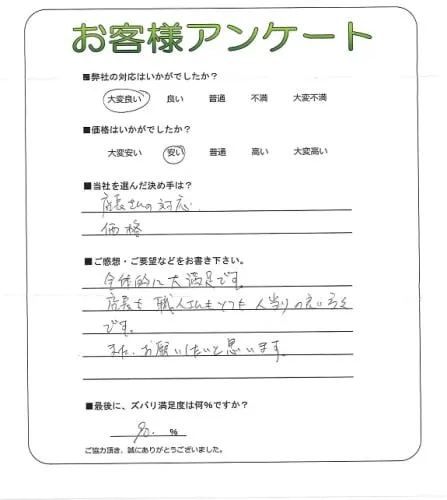 お客様アンケート
■弊社の対応はいかがでしたか？
大変良い 良い 普通 不満 大変不満
■価格はいかがでしたか？
大変安い 安い 普通 高い 大変高い
■当社を選んだ決め手は？
店長さんの対応.
価格
■ご感想・ご要望などをお書き下さい。
全体的に大満足です。
店長も職人さんもとても人当りの
です。
また、お願いしたいと思います。
■最後に、ズバリ満足度は何％ですか？
％
ご協力頂き、誠にありがとうございました。